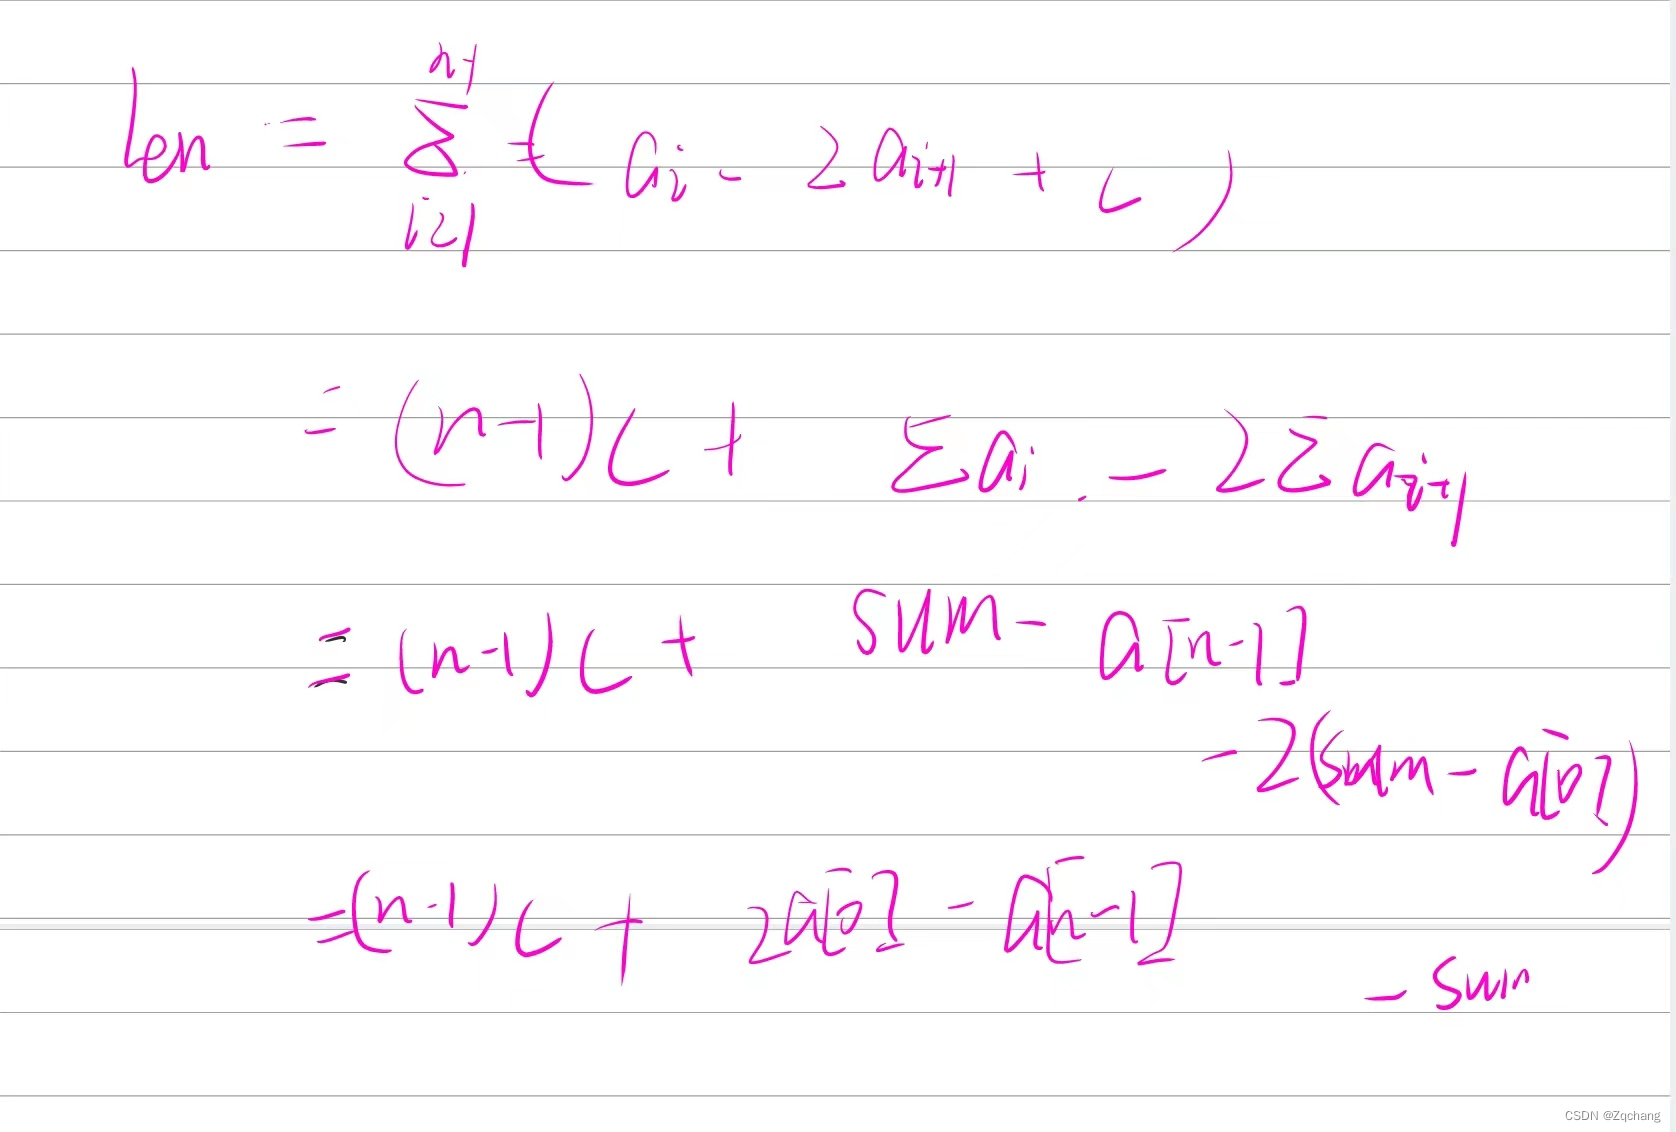 len = \sum_{i=1}^{n-1} (a_i - 2a_{i+1} + c)
= (n-1)c + Σa_i - 2Σa_{i+1}
= (n-1)c + sum - a[n-1]
- 2(sum - a[0])
= (n-1)c + 2a[0] - a[n-1]
- sum
CSDN @Zqchang